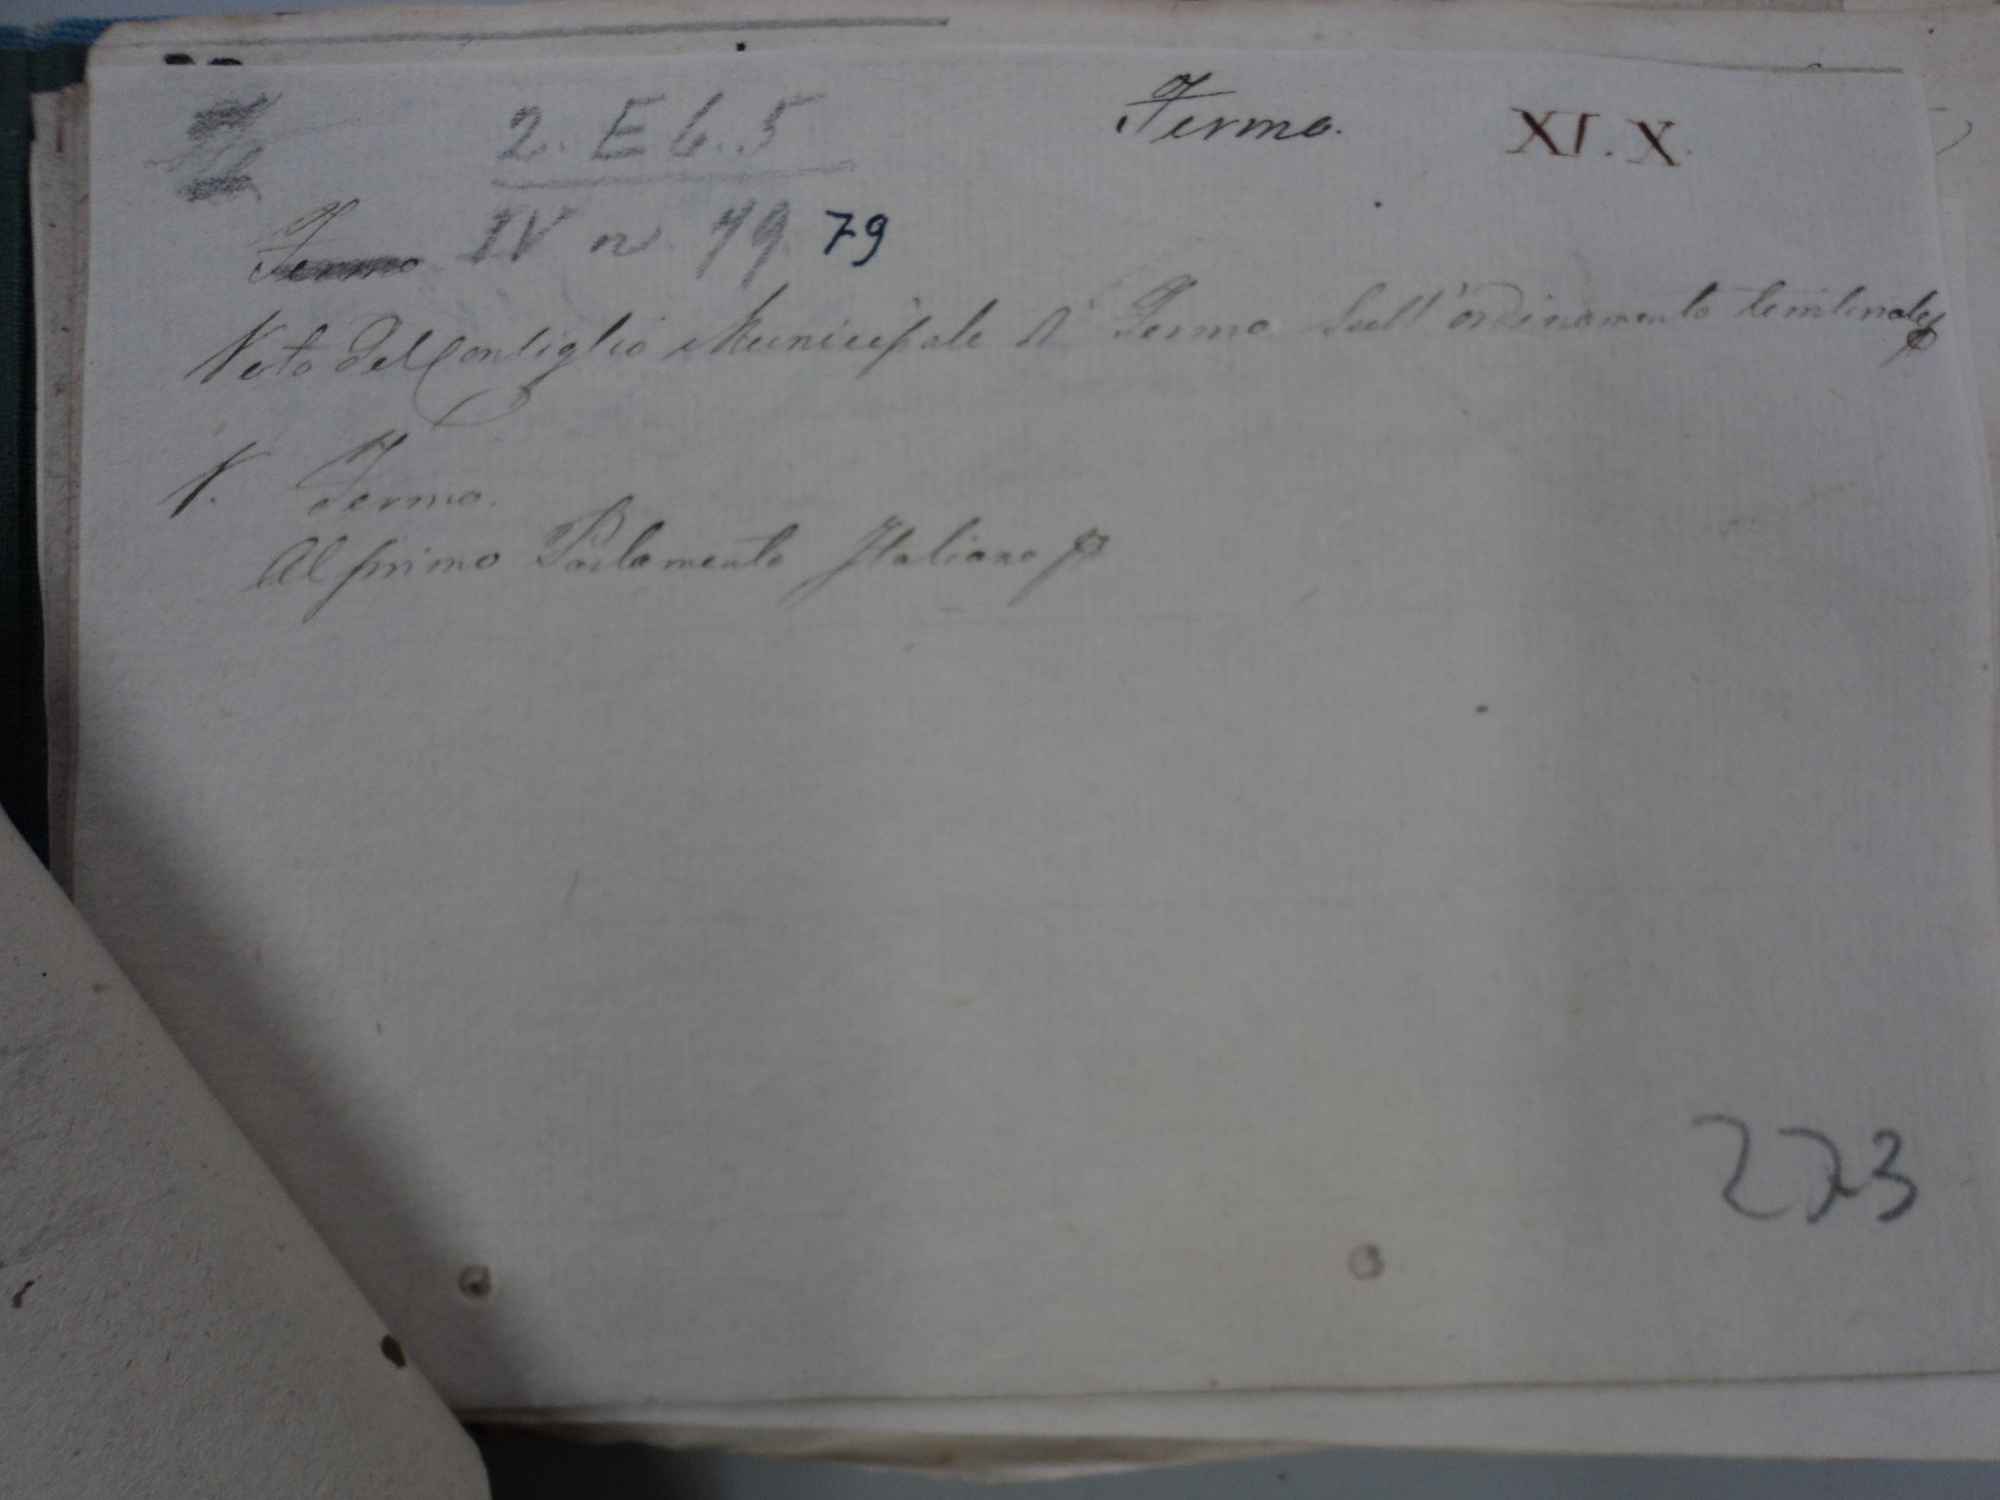 2. E 6. 5
Fermo. XI. X.
Fermo IV n 79 79
Voto del Consiglio Municipale di Fermo sull'ordinamento territoriale
V. Fermo.
Al primo Parlamento Italiano
223